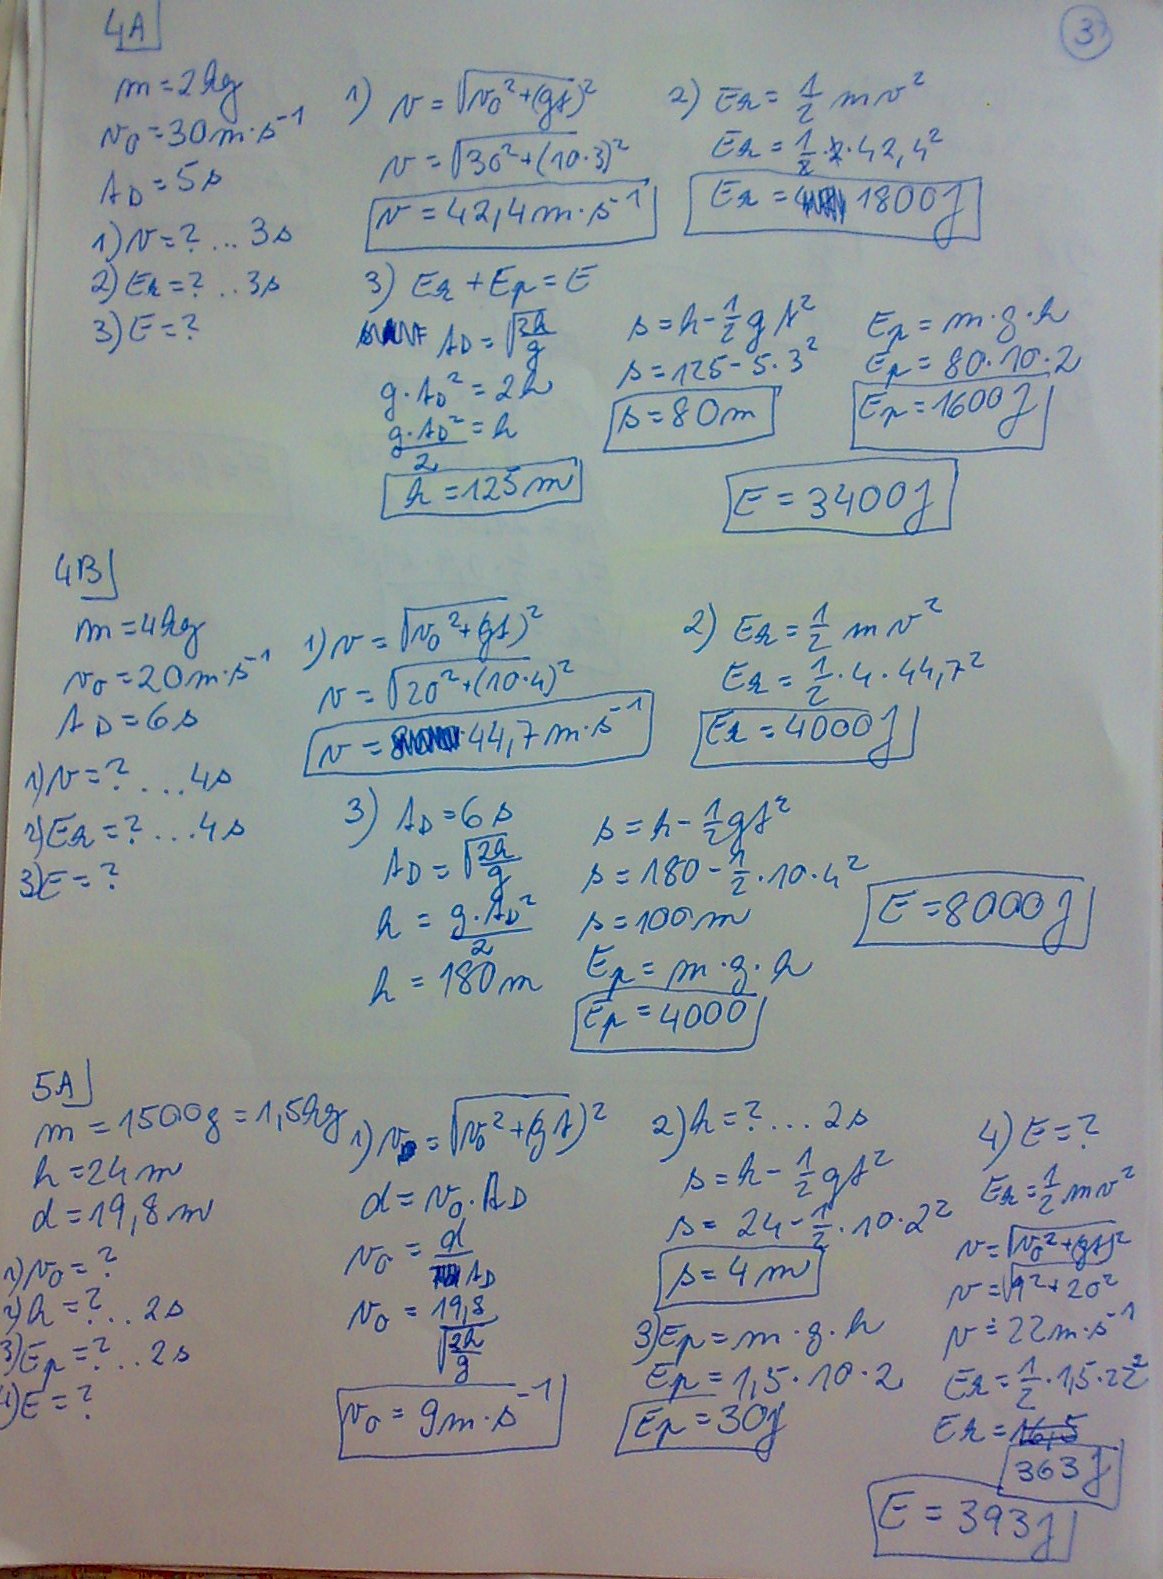 3
4A
m = 2kg
v₀ = 30 m·s⁻¹
t_D = 5s
1) v = ? ... 3s
2) Ek = ? .. 3s
3) E = ?
1) v = √(v₀² + (gt)²
v = √(30² + (10·3)²
v = 42,4 m·s⁻¹
2) Ek = 1/2 m v²
Ek = 1/2 · 2 · 42,4²
Ek = 1800 J
3) Ek + Ep = E
t_D = √(2h/g)
g·t_D² = 2h
g·t_D²/2 = h
h = 125 m
s = h - 1/2 g t²
s = 125 - 5·3²
s = 80m
Ep = m·g·h
Ep = 80·10·2
Ep = 1600 J
E = 3400 J
4B
m = 4kg
v₀ = 20 m·s⁻¹
t_D = 6s
1) v = ? ... 4s
2) Ek = ? ... 4s
3) E = ?
1) v = √(v₀² + (gt)²
v = √(20² + (10·4)²
v = 44,7 m·s⁻¹
2) Ek = 1/2 m v²
Ek = 1/2 · 4 · 44,7²
Ek = 4000 J
3) t_D = 6s
t_D = √(2h/g)
h = g·t_D²/2
h = 180 m
s = h - 1/2 g t²
s = 180 - 1/2 · 10 · 4²
s = 100 m
Ep = m·g·h
Ep = 4000
E = 8000 J
5A
m = 1500g = 1,5kg
h = 24 m
d = 19,8 m
1) v₀ = ?
2) h = ? ... 2s
3) Ep = ? ... 2s
4) E = ?
1) v = √(v₀² + (gt)²
d = v₀ · t_D
v₀ = d/t_D
v₀ = 19,8/√(2h/g)
v₀ = 9 m·s⁻¹
2) h = ? ... 2s
s = h - 1/2 g t²
s = 24 - 1/2 · 10 · 2²
s = 4 m
3) Ep = m·g·h
Ep = 1,5·10·2
Ep = 30 J
4) E = ?
Ek = 1/2 m v²
v = √(v₀² + (gt)²
v = √(9² + 20²
v ≐ 22 m·s⁻¹
Ek = 1/2 · 1,5 · 22²
Ek = 16,5
363 J
E = 393 J